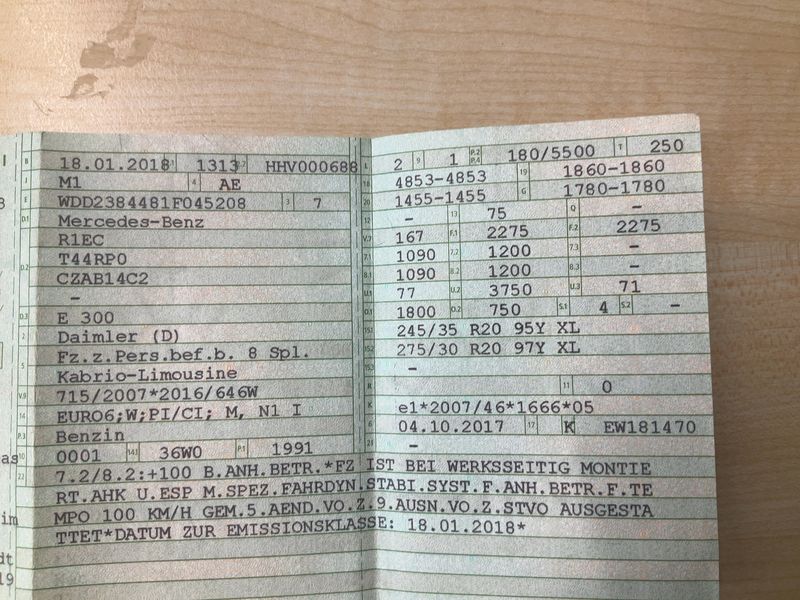 B 18.01.2018 2.1 1313 2.2 HHV000688
J M1 4 AE
E WDD2384481F045208 3 7
D.1 Mercedes-Benz
R1EC
D.2 T44RP0
CZAB14C2
-
D.3 E 300
2 Daimler (D)
5 Fz.z.Pers.bef.b. 8 Spl.
Kabrio-Limousine
V.9 715/2007*2016/646W
14 EURO6;W;PI/CI; M, N1 I
P.3 Benzin
10 0001 14.1 36W0 P.1 1991
22 7.2/8.2:+100 B.ANH.BETR.*FZ IST BEI WERKSSEITIG MONTIE
RT.AHK U.ESP M.SPEZ.FAHRDYN.STABI.SYST.F.ANH.BETR.F.TE
MPO 100 KM/H GEM.5.AEND.VO.Z.9.AUSN.VO.Z.STVO AUSGESTA
TTET*DATUM ZUR EMISSIONSKLASSE: 18.01.2018*
L 2 9 1 P.2 P.4 180/5500 T 250
18 4853-4853 19 1860-1860
20 1455-1455 G 1780-1780
12 - 13 75 Q -
V.7 167 F.1 2275 F.2 2275
7.1 1090 7.2 1200 7.3 -
8.1 1090 8.2 1200 8.3 -
U.1 77 U.2 3750 U.3 71
O.1 1800 O.2 750 S.1 4 S.2 -
15.1 245/35 R20 95Y XL
15.2 275/30 R20 97Y XL
15.3 -
R 11 0
K e1*2007/46*1666*05
6 04.10.2017 17 K 16 EW181470
21 -